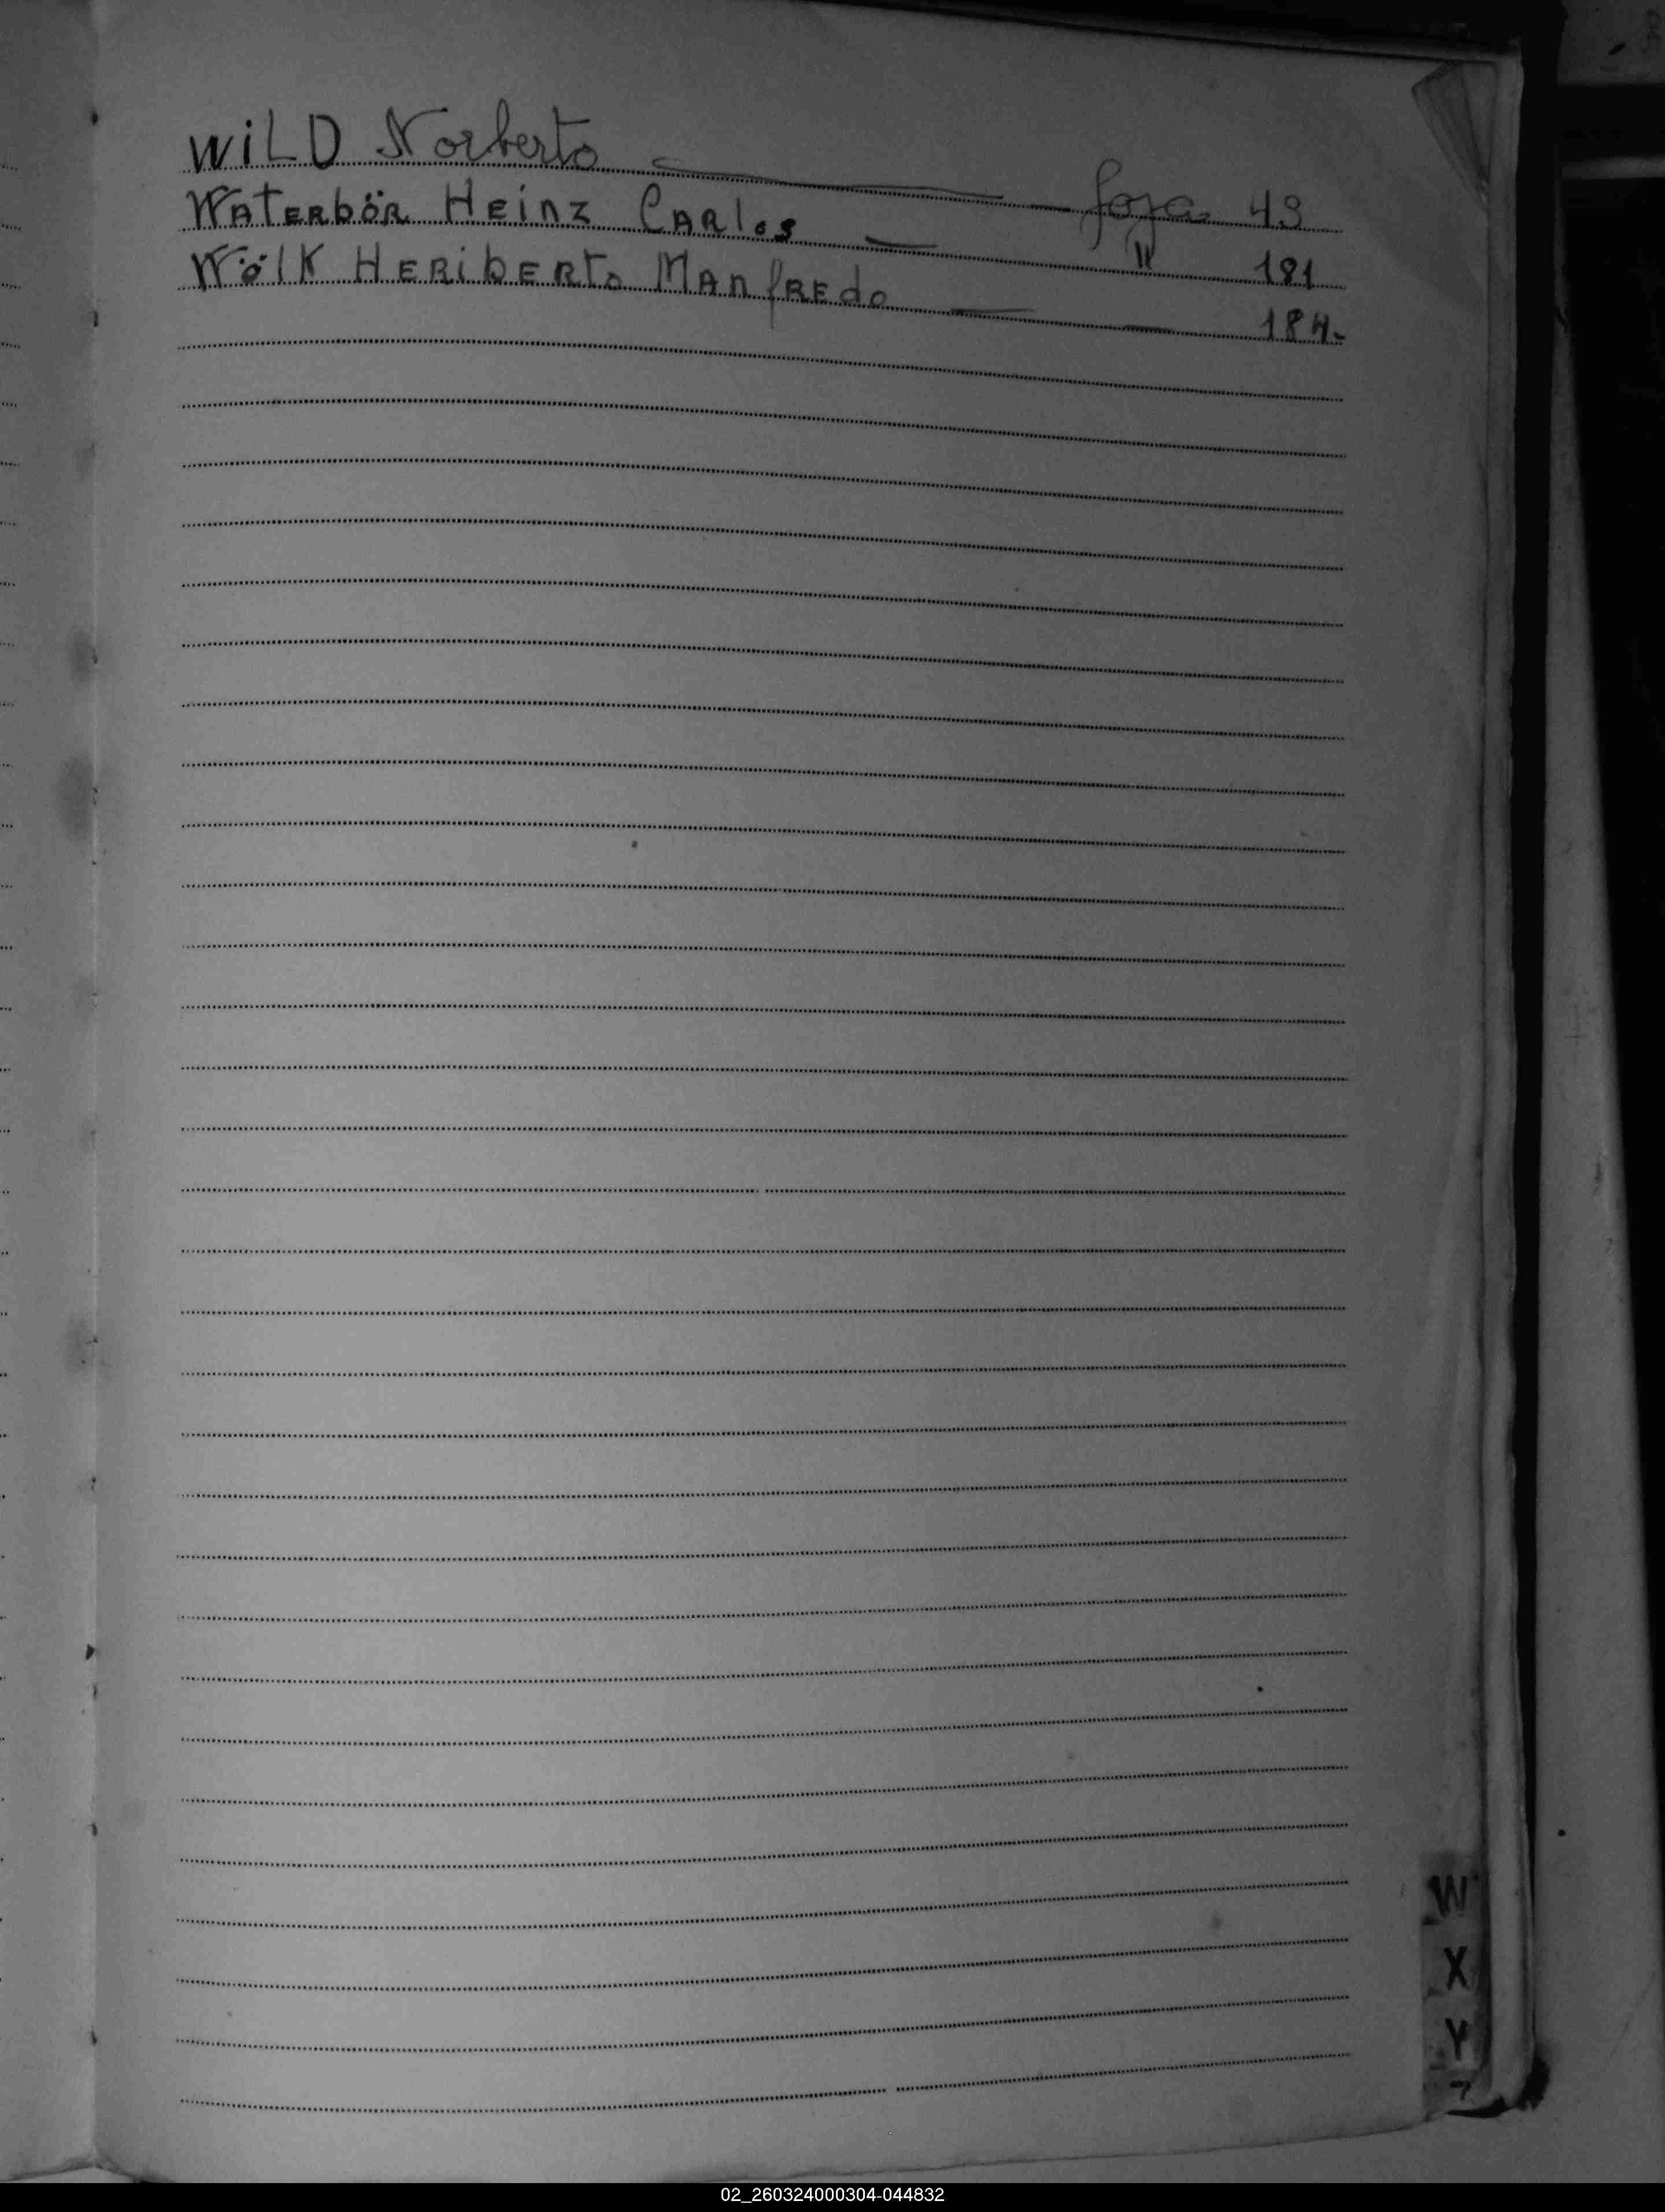 WiLD Norberto — foja 43
WATERbÖR HEinz CARlos — " 181
WölK HERibERTo MAnfREdo — — 184.
W
X
Y
Z
02_260324000304-044832